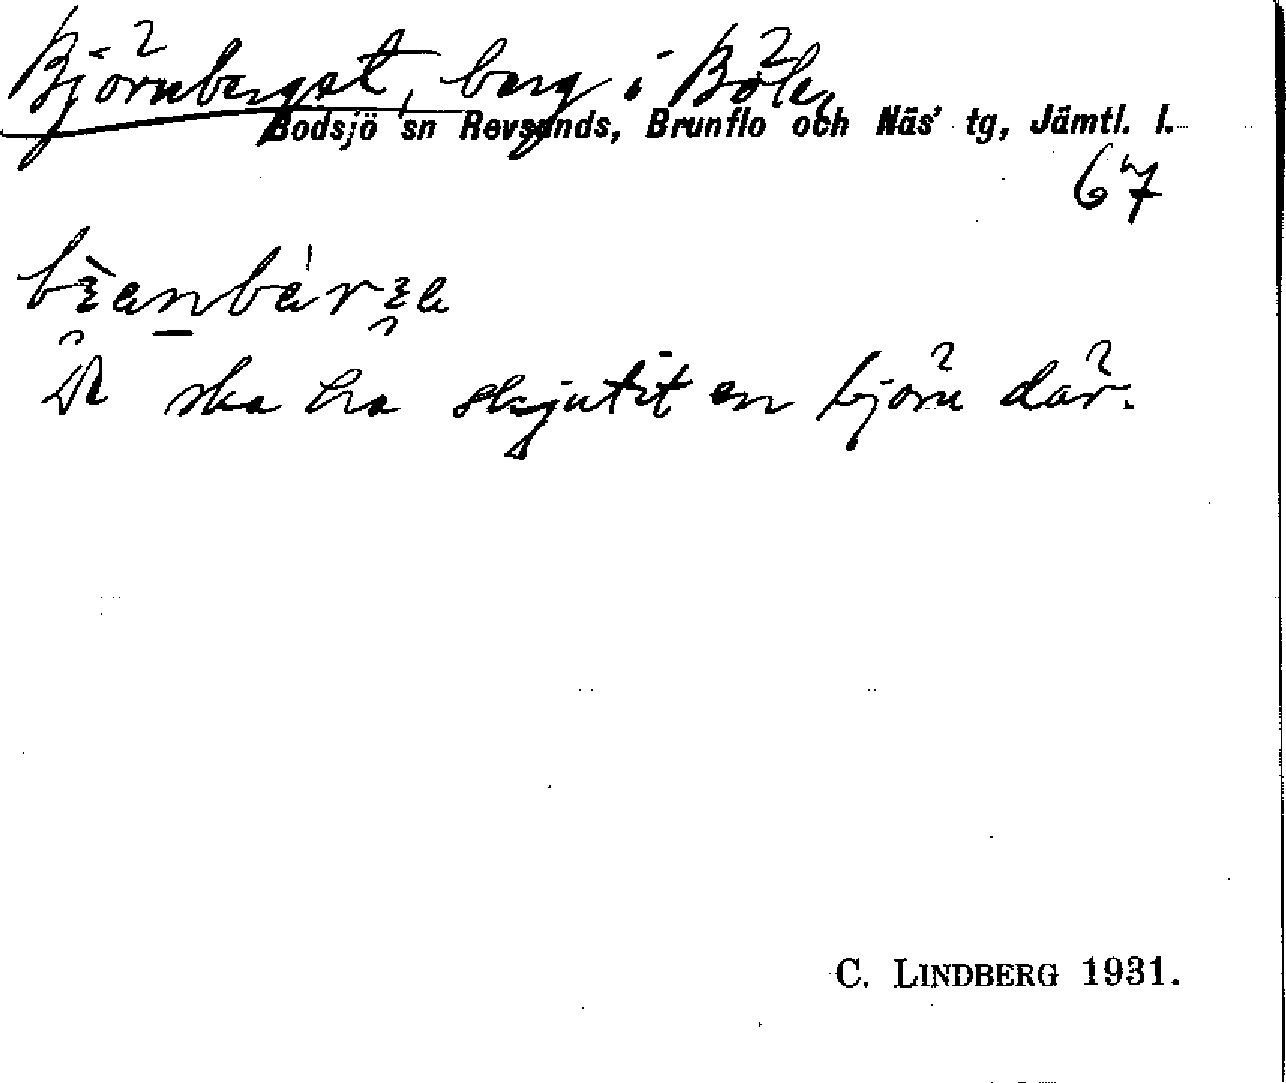 Björnberget, berg i Bölen
Bodsjö sn Revsunds, Brunflo och Näs' tg, Jämtl. l.
67
ska ha skjutit en björn där.
C. LINDBERG 1931.